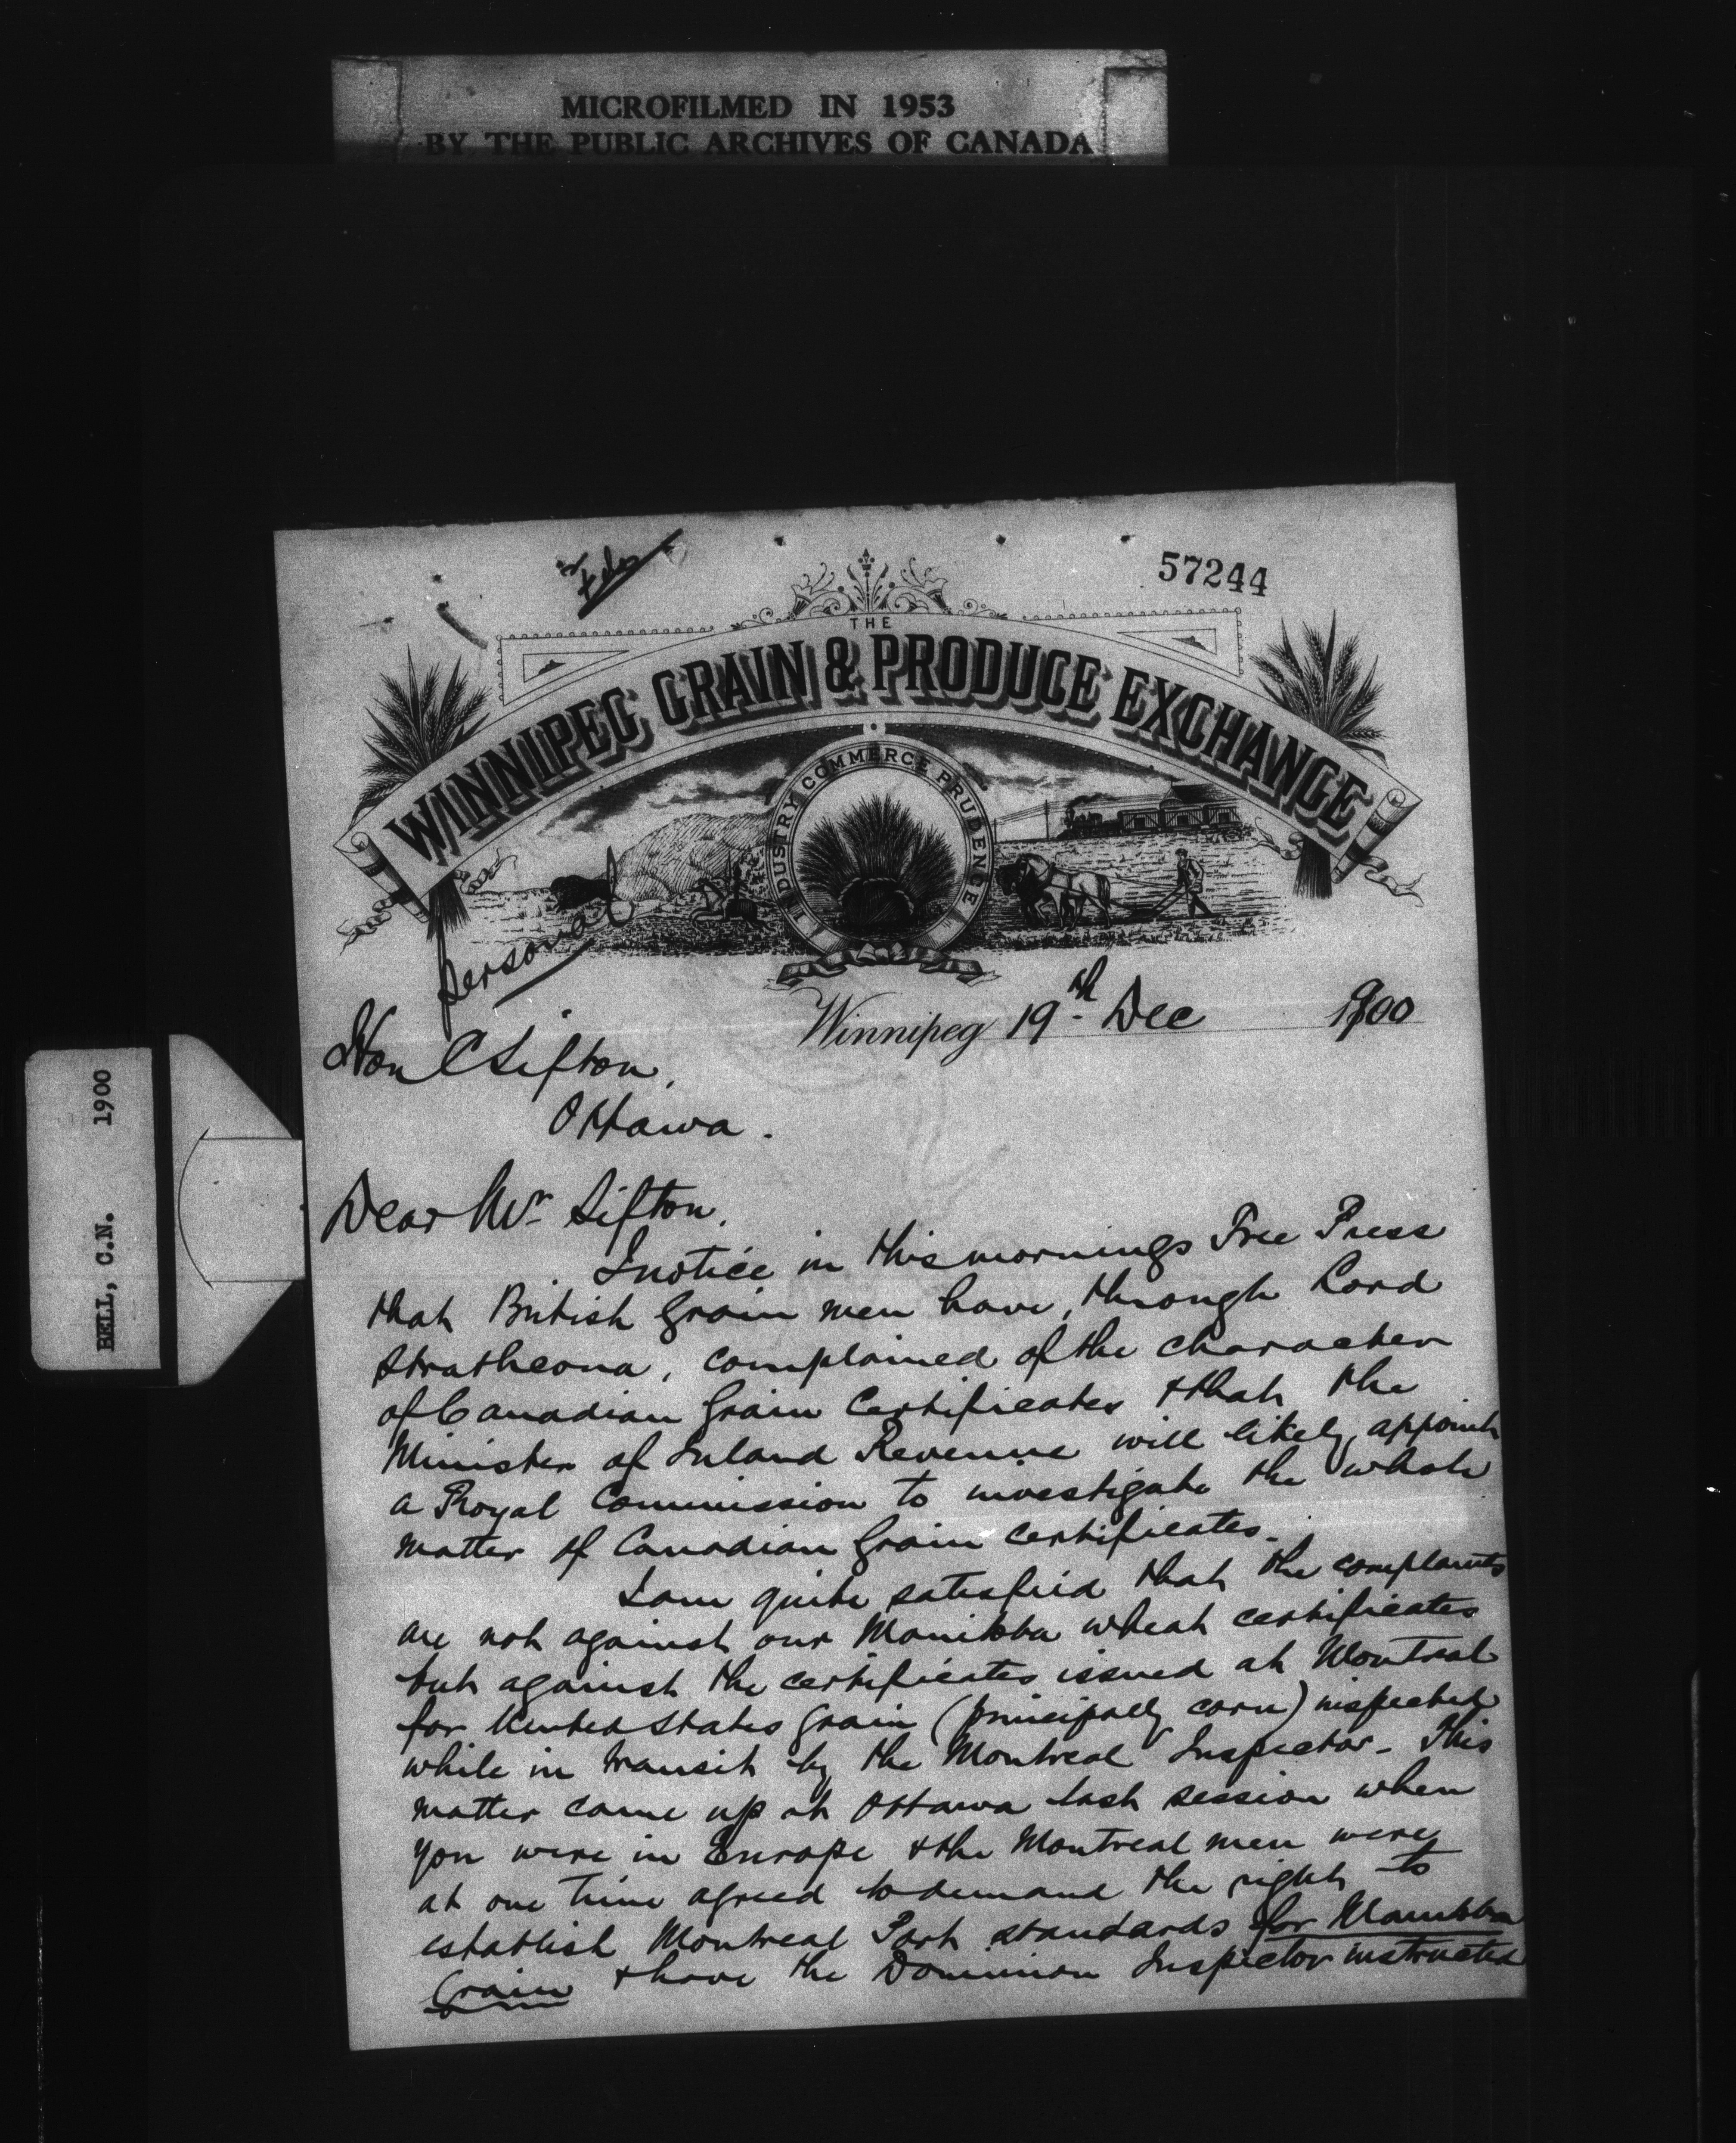 MICROFILMED IN 1953
BY THE PUBLIC ARCHIVES OF CANADA
57244
THE
WINNIPEG GRAIN & PRODUCE EXCHANGE
INDUSTRY COMMERCE PRUDENCE
Personal
Winnipeg 19th Dec 1900
Hon C Sifton,
Ottawa.
BELL, C.N. 1900
Dear Mr Sifton,
I notice in this mornings Free Press
that British Grain men have, through Lord
Strathcona, complained of the character
of Canadian Grain Certificates & that the
Minister of Inland Revenue will likely appoint
a Royal Commission to investigate the whole
matter of Canadian Grain certificates.
I am quite satisfied that the complaints
are not against our Manitoba wheat certificates
but against the certificates issued at Montreal
for United States Grain (principally corn) inspected
while in transit by the Montreal Inspector - This
matter came up at Ottawa last session when
you were in Europe & the Montreal men were
at one time agreed to demand the right to
establish Montreal Port standards for Manitoba
Grain & have the Dominion Inspector instructed